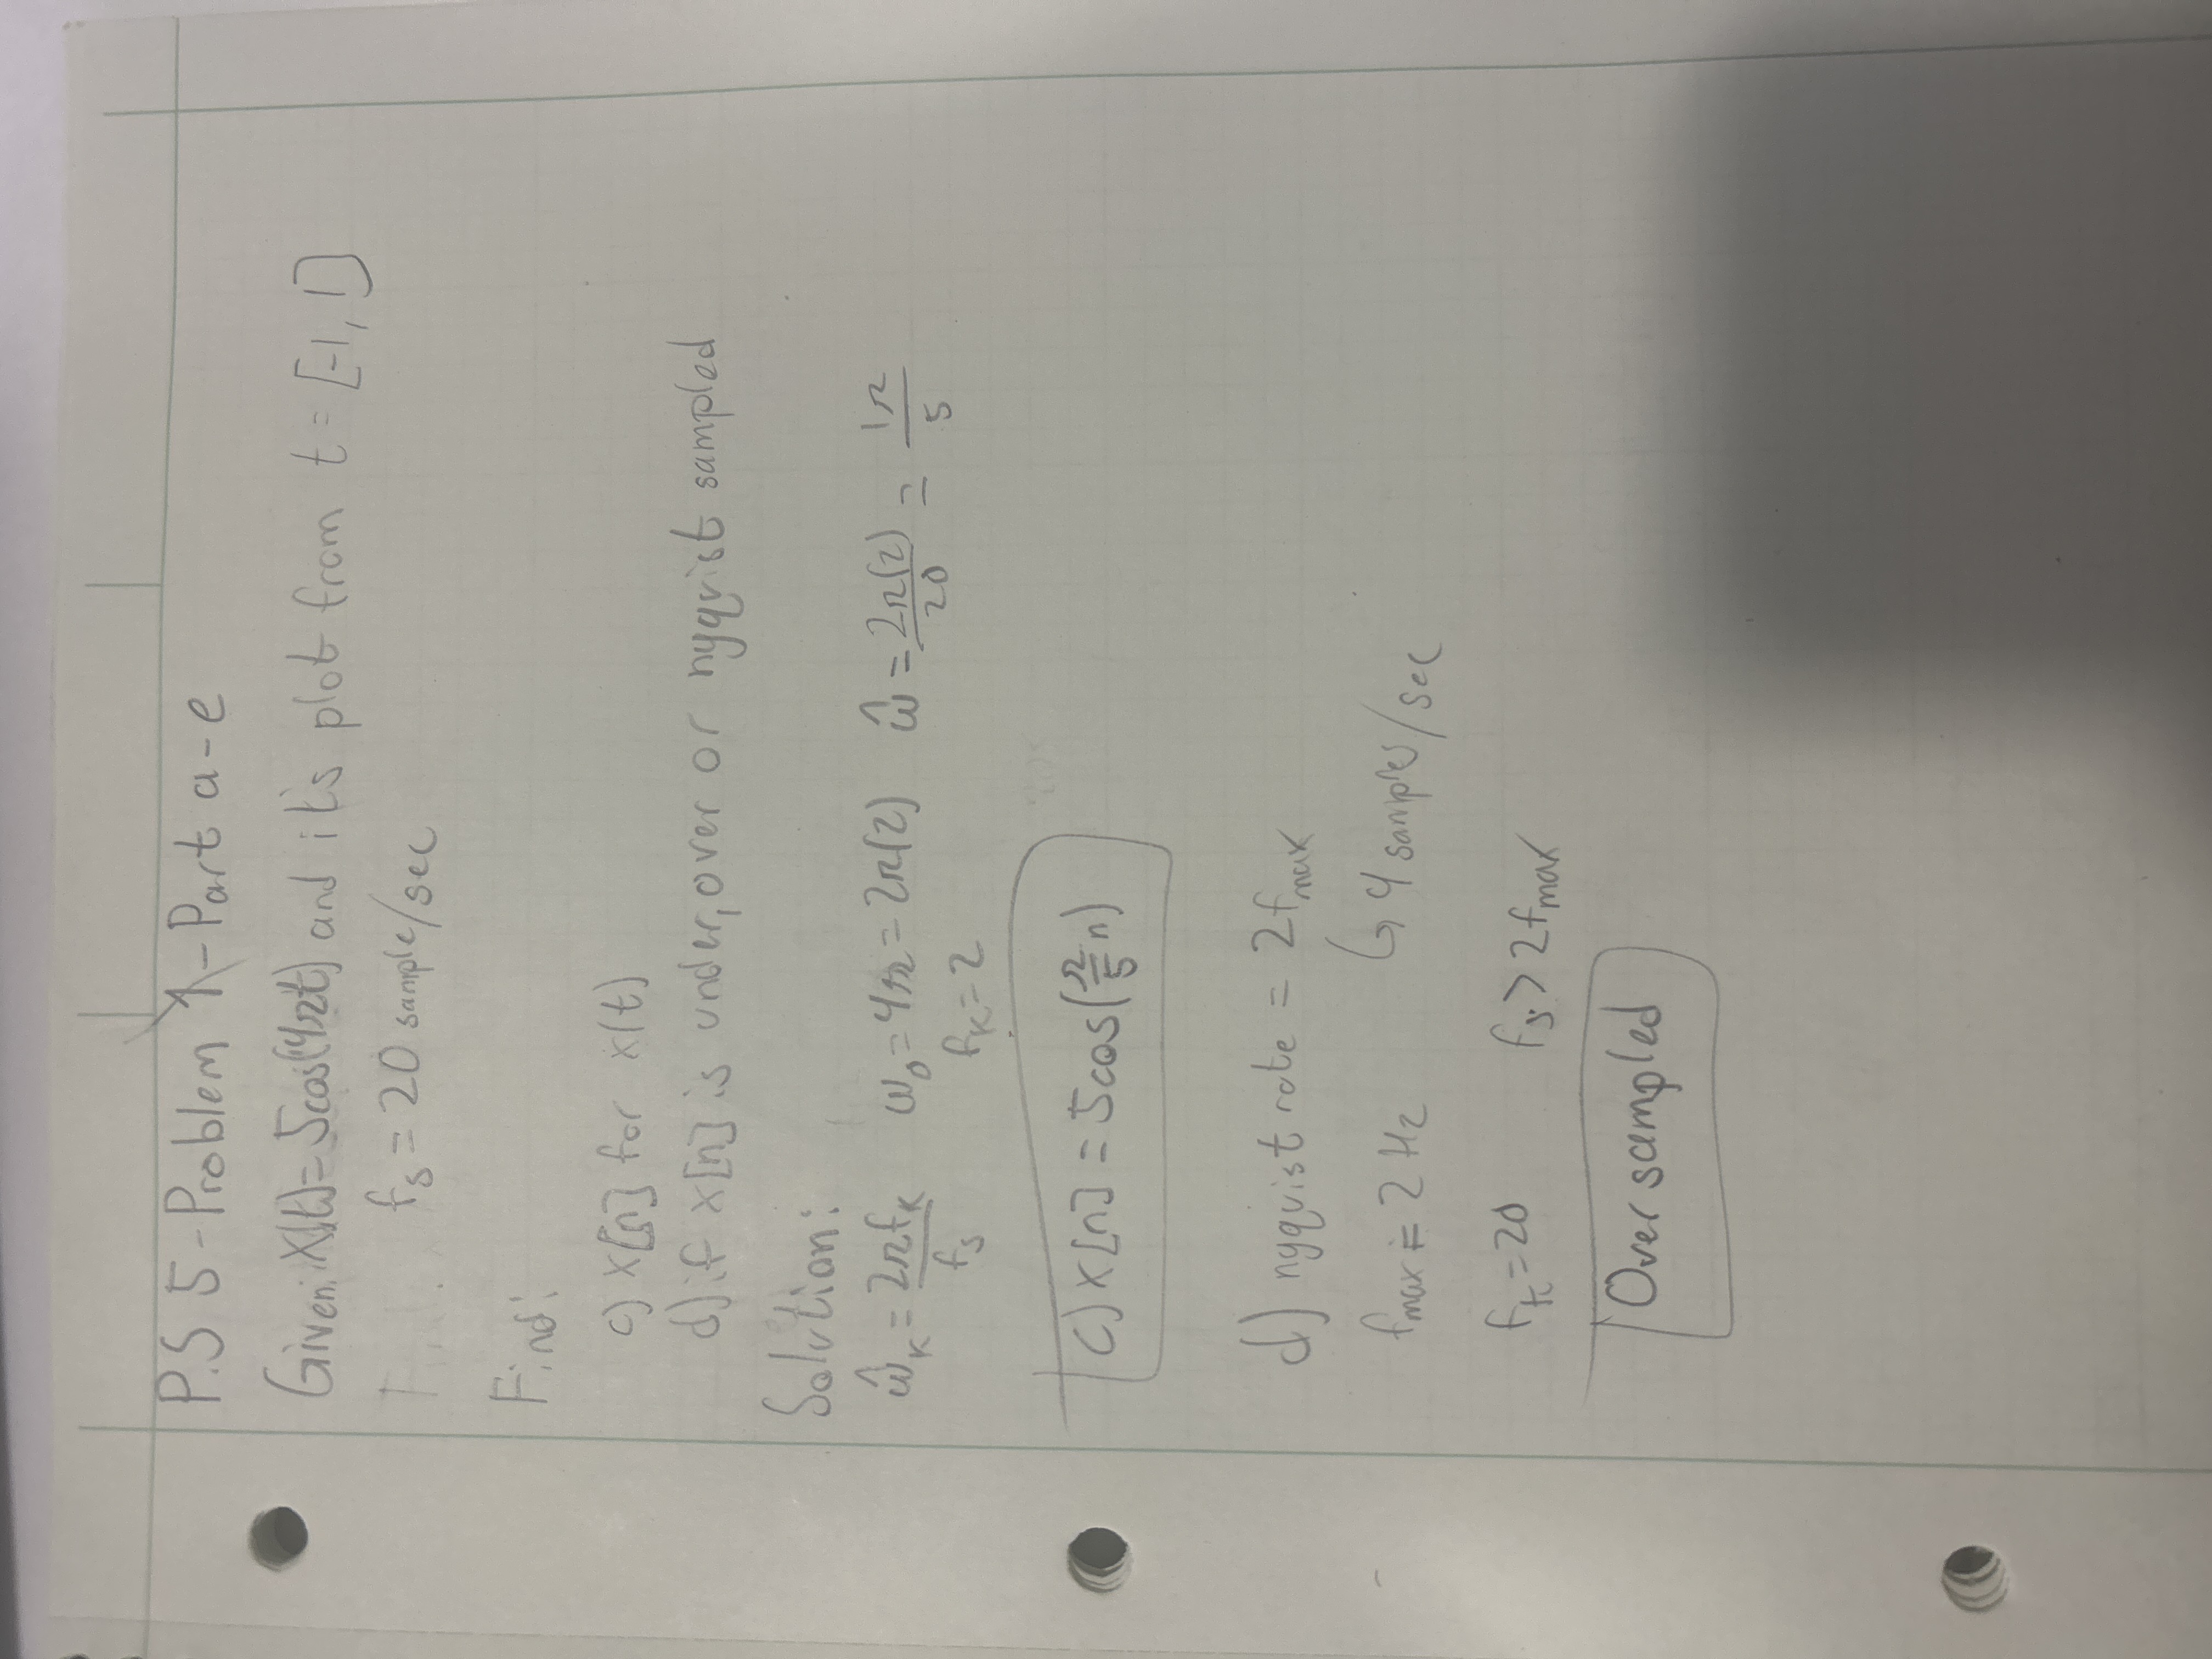 P.S 5-Problem 1-Part a-e
Given: x(t)=5cos(4πt) and it's plot from t=[-1,1]
fs = 20 sample/sec
Find:
c) x[n] for x(t)
d) if x[n] is under, over or nyquist sampled
Solution:
ŵK = 2πfK/fs   ω0=4π=2π(2)   ŵ = 2π(2)/20 = 1π/5
fK=2
c) x[n] = 5cos(π/5 n)
d) nyquist rate = 2fmax
↳ 4 samples/sec
fmax = 2 Hz
=20   fs>2fmax
Over sampled